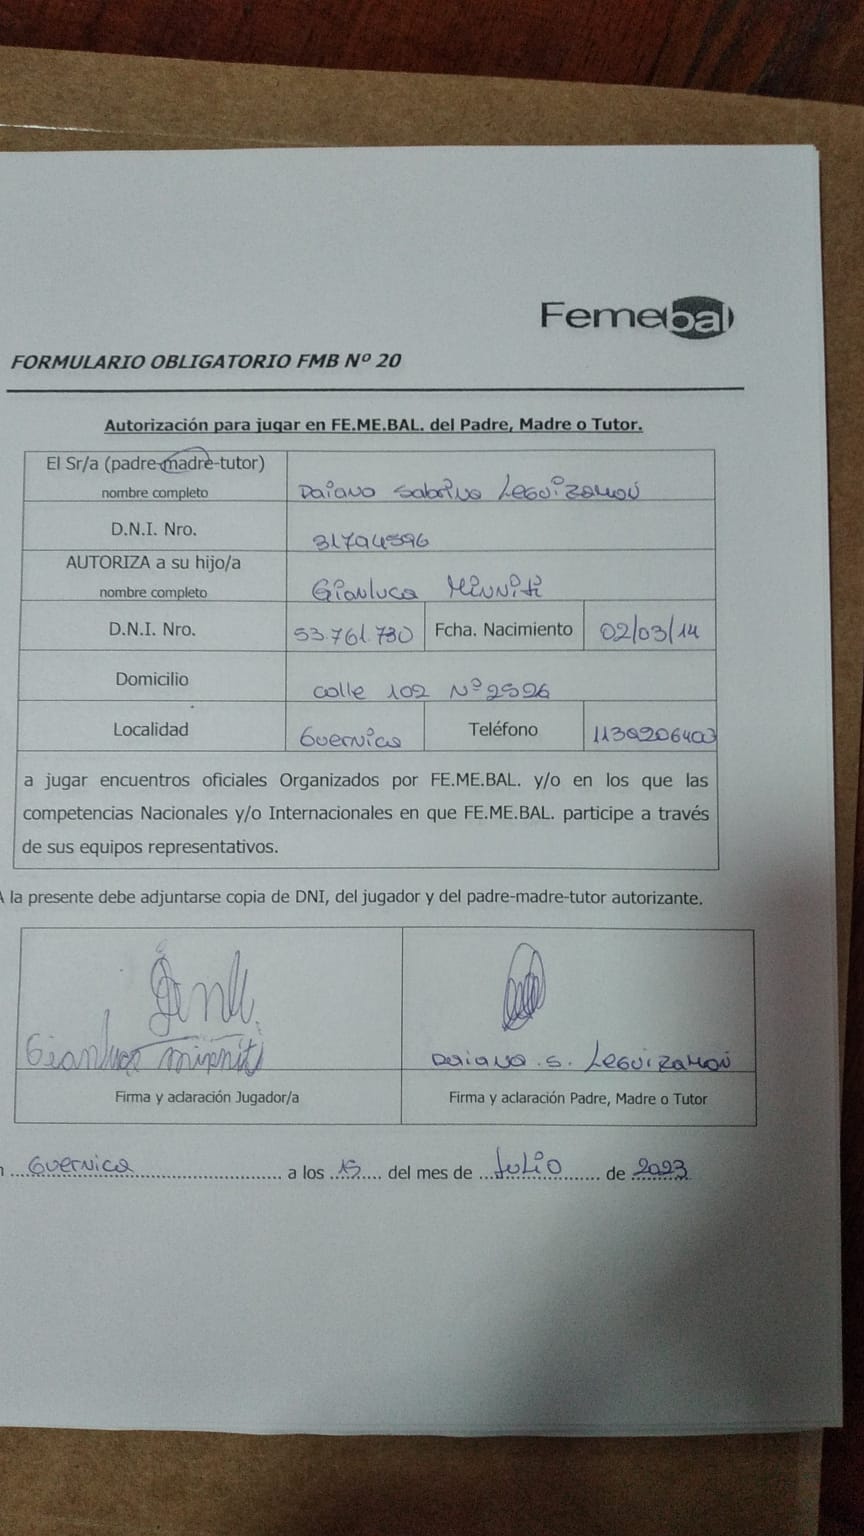 Femebal
FORMULARIO OBLIGATORIO FMB Nº 20
Autorización para jugar en FE.ME.BAL. del Padre, Madre o Tutor.
El Sr/a (padre-madre-tutor)
nombre completo
Daiana Sabrina Leguizamón
D.N.I. Nro.
31794596
AUTORIZA a su hijo/a
nombre completo
Gianluca Minniti
D.N.I. Nro. 53.761.730 Fcha. Nacimiento 02/03/14
Domicilio
calle 102 Nº 2526
Localidad Guernica Teléfono
a jugar encuentros oficiales Organizados por FE.ME.BAL. y/o en los que las
competencias Nacionales y/o Internacionales en que FE.ME.BAL. participe a través
de sus equipos representativos.
A la presente debe adjuntarse copia de DNI, del jugador y del padre-madre-tutor autorizante.
Gianluca minniti
Daiana S. Leguizamón
Firma y aclaración Jugador/a
Firma y aclaración Padre, Madre o Tutor
Guernica a los 15 del mes de Julio de 2023